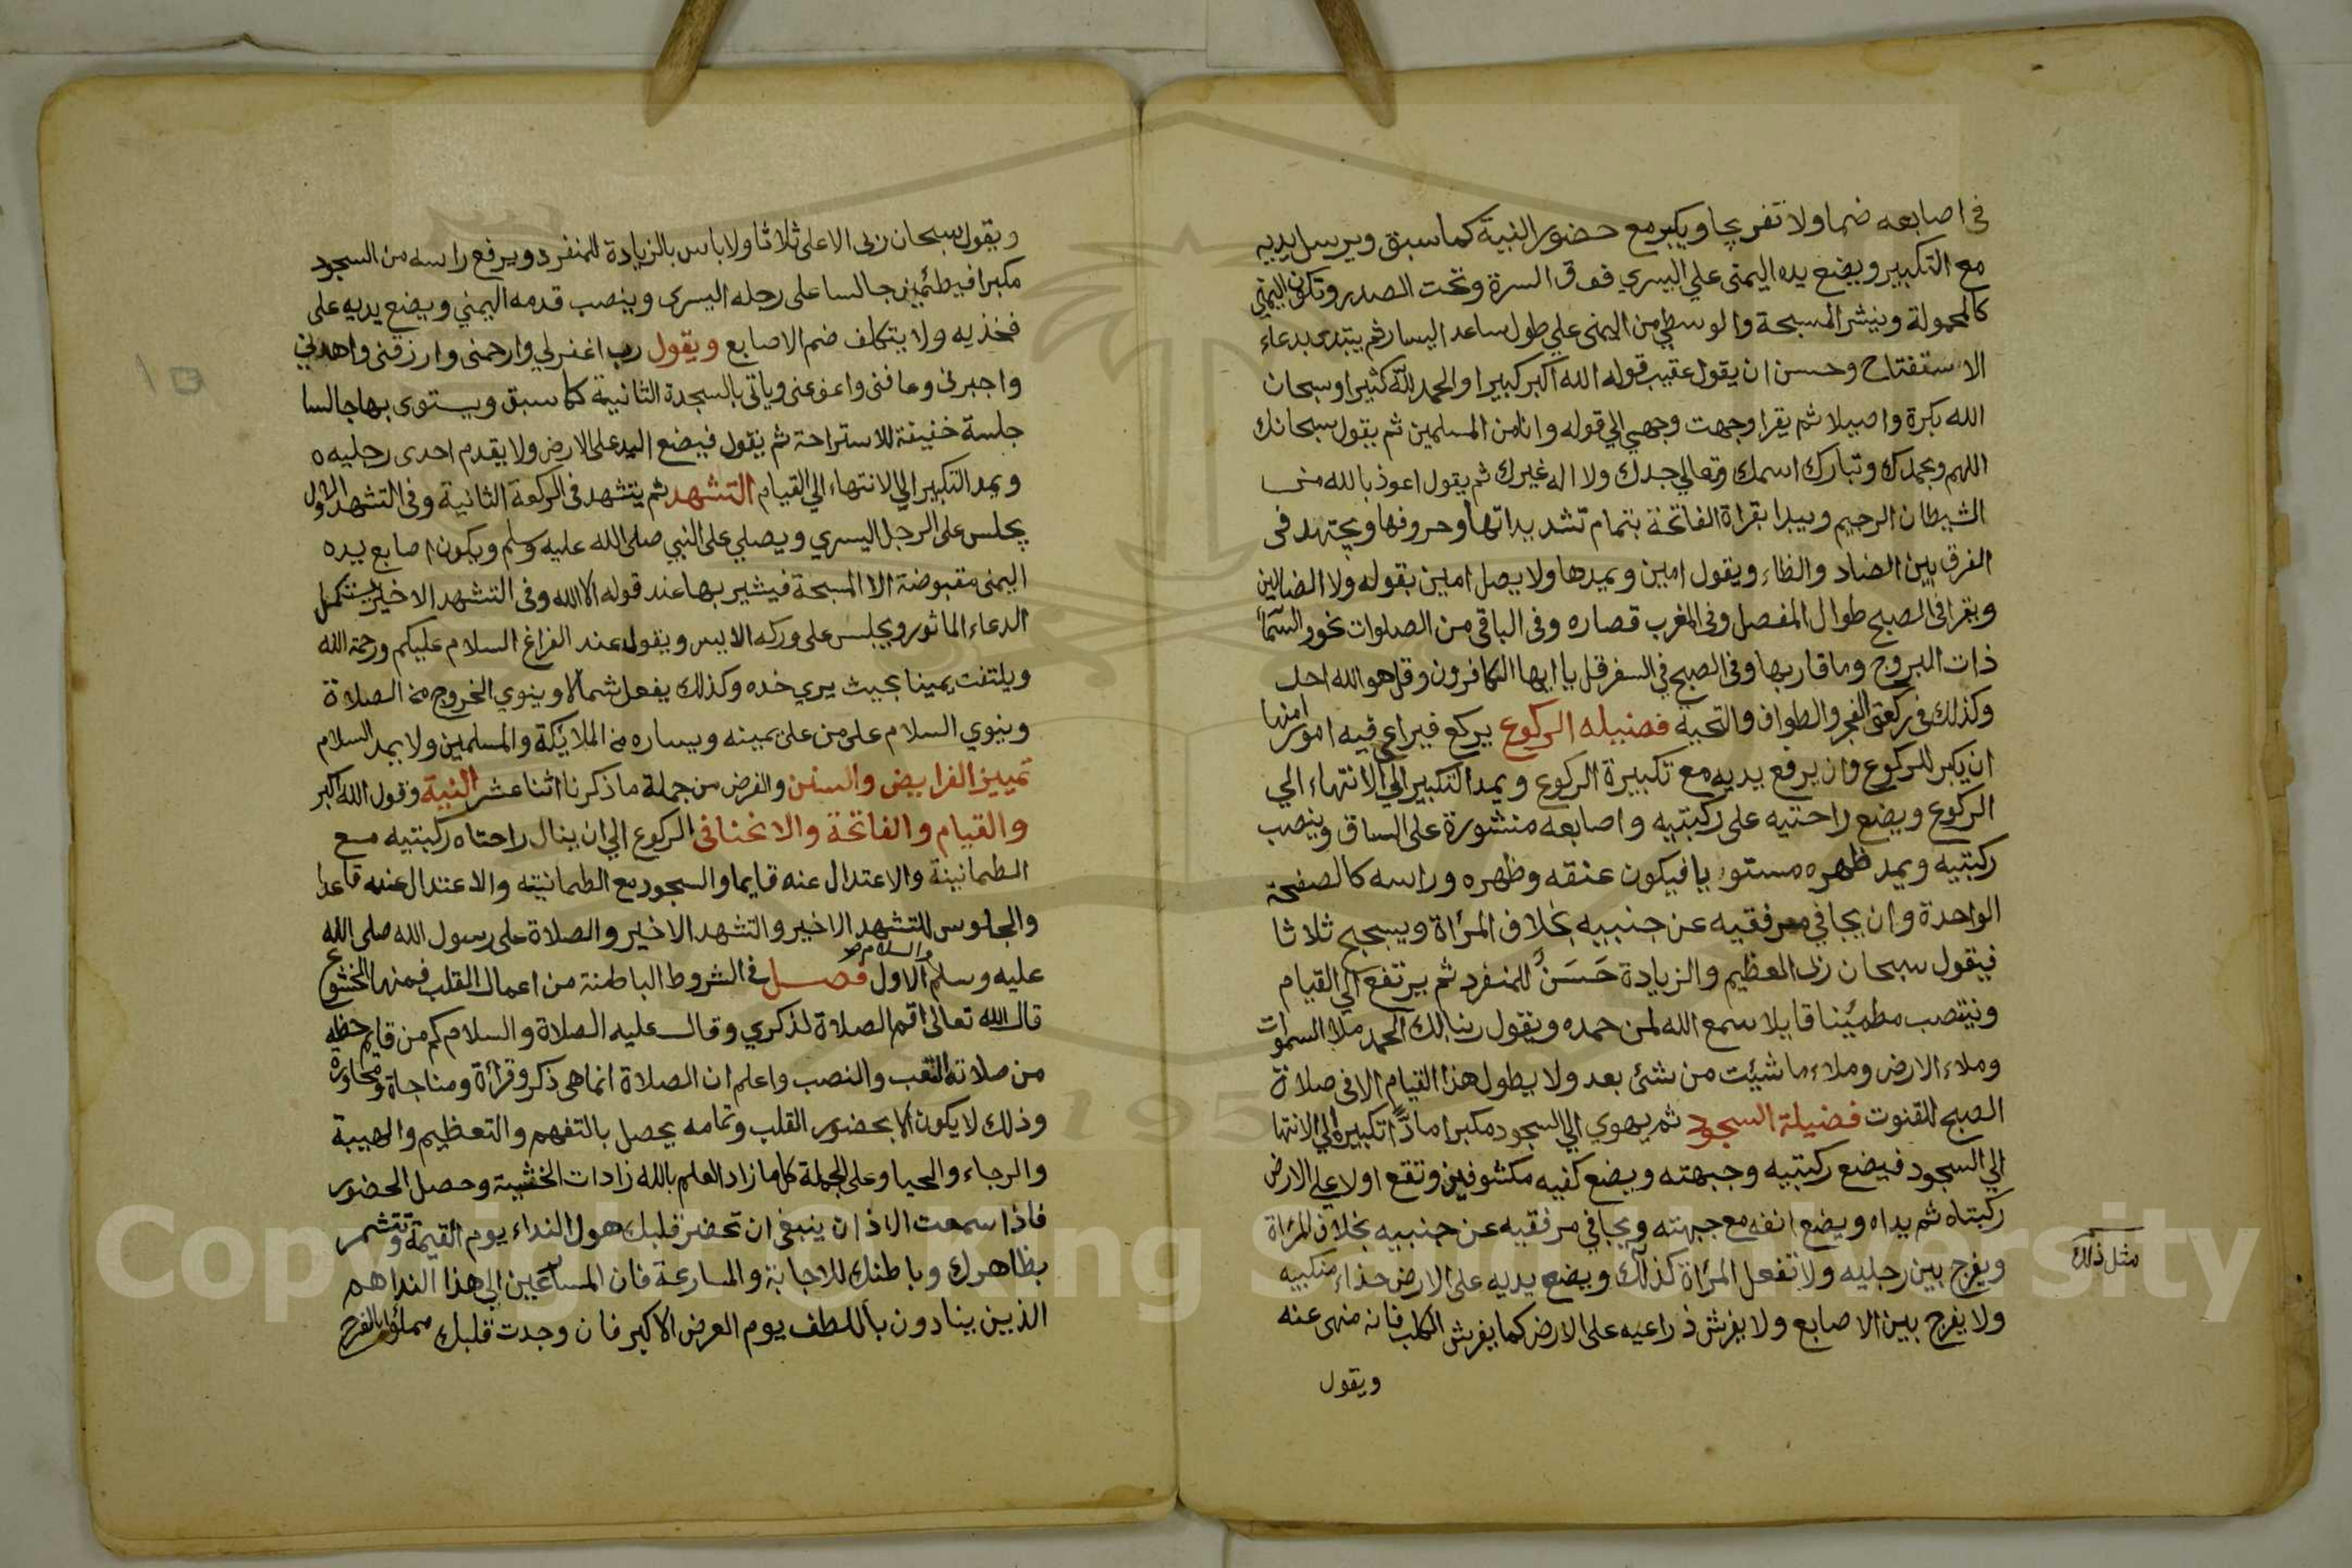 في اصابعه ضما ولا تفريجا ويكبر مع حضور النية كما سبق ويرسل يديه
مع التكبير ويضع يده اليمنى على اليسري فوق السرة وتحت الصدر وتكون اليمني
كالمحمولة وينشر المسبحة والوسطي من اليمنى علي طول ساعد اليسار ثم يبتدى بدعاء
الاستفتاح وحسن ان يقول عقيب قوله الله اكبر كبيرا والحمد لله كثيرا وسبحان
الله بكرة واصيلا ثم يقرا وجهت وجهي الي قوله وانا من المسلمين ثم يقول سبحانك
اللهم وبحمدك وتبارك اسمك وتعالي جدك ولا اله غيرك ثم يقول اعوذ بالله من
الشيطان الرجيم ويبدا بقراة الفاتحة بتمام تشديداتها وحروفها ويجتهد فى
الفرق بين الضاد والظاء ويقول امين ويمدها ولا يصل امين بقوله ولا الضالين
ويقرا في الصبح طوال المفصل وفى المغرب قصاره وفى الباقي من الصلوات نحو والسماء
ذات البروج وما قاربها وفى الصبح في السفر قل يا ايها الكافرون وقل هو الله احد
وكذلك في ركعتى الفجر والطواف والتحية فضيلة الركوع يركع فيراعي فيه امورا منها
ان يكبر للركوع وان يرفع يديه مع تكبيرة الركوع ويمد التكبير الي الانتهاء الي
الركوع ويضع راحتيه على ركبتيه واصابعه منشورة على الساق وينصب
ركبتيه ويمد ظهره مستويا فيكون عنقه وظهره وراسه كالصفحة
الواحدة وان يجافي مرفقيه عن جنبيه بخلاف المرأة ويسبح ثلاثا
فيقول سبحان ربى العظيم والزيادة حَسَنٌ للمنفرد ثم يرتفع الي القيام
وينتصب مطمئينا قايلا سمع الله لمن حمده ويقول ربنا لك الحمد ملاء السموات
وملاء الارض وملاء ما شيئت من شئ بعد ولا يطول هذا القيام الا فى صلاة
الصبح للقنوت فضيلة السجود ثم يهوي الي السجود مكبرا مادًّا تكبيره الي الانتها
الي السجود فيضع ركبتيه وجبهته ويضع كفيه مكشوفين وتقع اولا على الارض
ركبتاه ثم يداه ويضع انفه مع جبهته ويجافي مرفقيه عن جنبيه بخلاف المرأة
ويفرج بين رجليه ولا تفعل المرأة كذلك ويضع يديه على الارض حذاء منكبيه
مثل ذلك
ولا يفرج بين الاصابع ولا يفرش ذراعيه على الارض كما يفرش الكلب فانه منهى عنه
ويقول
ويقول سبحان ربى الاعلى ثلاثا ولا باس بالزيادة للمنفرد ويرفع راسه من السجود
مكبرا فيطمئين جالسا على رجله اليسرى وينصب قدمه اليمني ويضع يديه على
فخذيه ولا يتكلف ضم الاصابع ويقول رب اغفرلي وارحمنى وارزقنى واهدني
واجبرنى وعافنى واعف عنى وياتى بالسجدة الثانية كما سبق ويستوى بها جالسا
جلسة خفيفة للاستراحة ثم يقول فيضع اليد على الارض ولا يقدم احدى رجليه ه
ويمد التكبير الي الانتهاء الي القيام التشهد ثم يتشهد فى الركعة الثانية وفى التشهد الاول
يجلس على الرجل اليسري ويصلي على النبي صلى الله عليه وسلم ويكون اصابع يده
اليمنى مقبوضة الا المسبحة فيشير بها عند قوله الا الله وفى التشهد الاخير يستكمل
الدعاء الماثور ويجلس على وركه الايسر ويقول عند الفراغ السلام عليكم ورحمة الله
ويلتفت يمينا بحيث يري خده وكذلك يفعل شمالا وينوي الخروج من الصلاة
وينوي السلام على من على يمينه ويساره من الملائيكة والمسلمين ولا يمد السلام
تمييز الفرايض والسنن والفرض من جملة ما ذكرنا اثنا عشر النية وقول الله اكبر
والقيام والفاتحة والانحنا فى الركوع الي ان ينال راحتاه ركبتيه مع
الطمانينة والاعتدال عنه قايما والسجود مع الطمانينه والاعتدال عنه قاعدا
والجلوس للتشهد الاخير والتشهد الاخير والصلاة على رسول الله صلى الله
عليه وسلم والسلام الاول فصل في الشروط الباطنة من اعمال القلب فمنها الخشوع
قال الله تعالى اقم الصلاة لذكري وقال عليه الصلاة والسلام كم من قايم حظه
من صلاته التعب والنصب واعلم ان الصلاة انما هى ذكر وقرأة ومناجاة ومحاورة
وذلك لا يكون الا بحضور القلب وتمامه يحصل بالتفهم والتعظيم والهيبة
والرجاء والحيا وعلى الجملة كل ما زاد العلم بالله زادات الخشية وحصل الحضور
فاذا سمعت الاذان ينبغى ان تحضر قلبك هول النداء يوم القيمة وتتشمر
بظاهرك وباطنك للاجابة والمسارعة فان المساعين الي هذا الندا هم
الذين ينادون باللطف يوم العرض الاكبر فان وجدت قلبك مملوا بالفرح